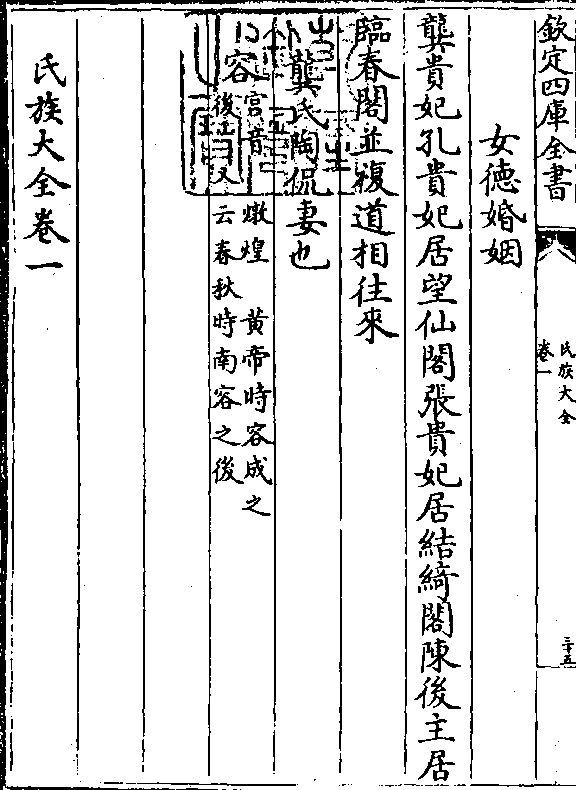 欽定四庫全書
氏族大全
卷一
三十五
女徳婚姻
龔貴妃孔貴妃居望仙閣張貴妃居結綺閣陳後主居
臨春閣並複道相往來
龔氏陶侃妻也
容
宮音 燉煌 黄帝時容成之
後又云春秋時南容之後
氏族大全卷一